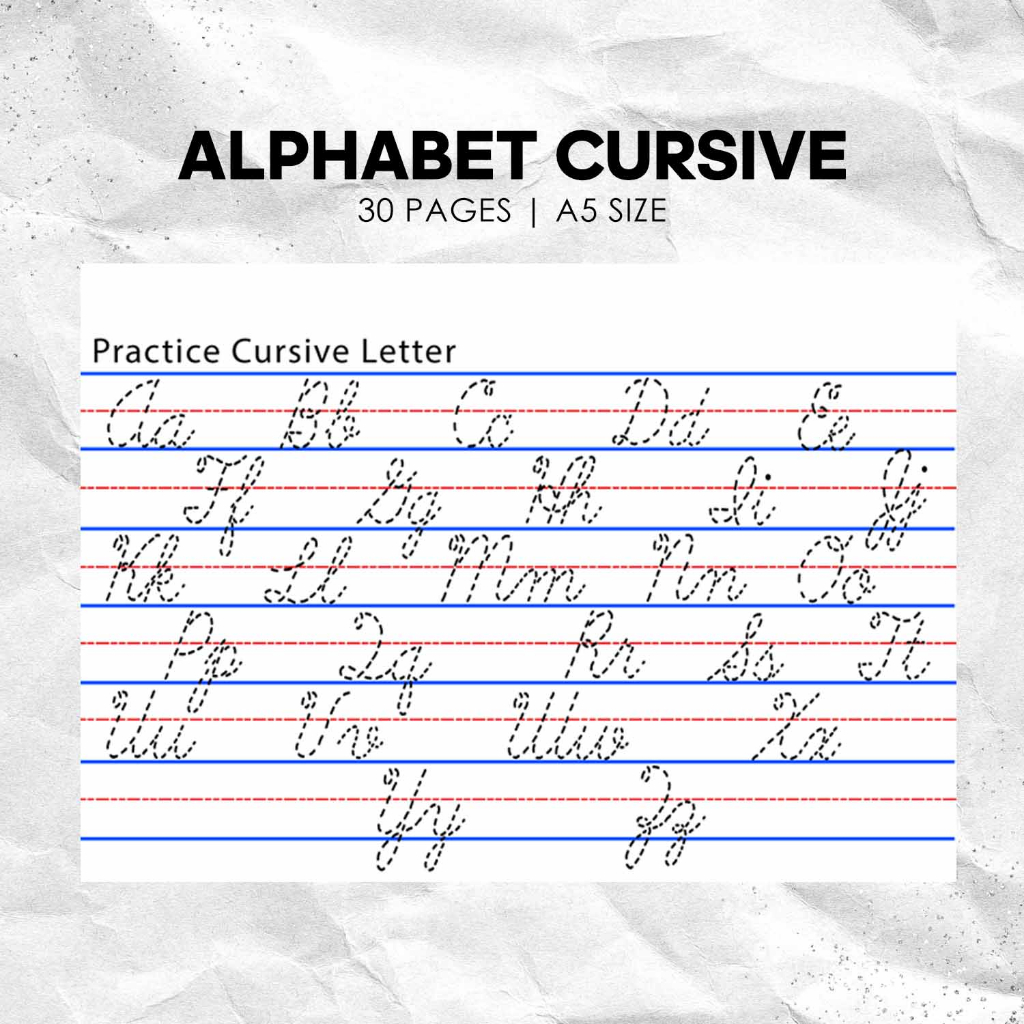 ALPHABET CURSIVE
30 PAGES | A5 SIZE
Practice Cursive Letter
Aa Bb Cc Dd Ee
Ff Gg Hh Ii Jj
Kk Ll Mm Nn Oo
Pp Qq Rr Ss Tt
Uu Vv Ww Xx
Yy Zz